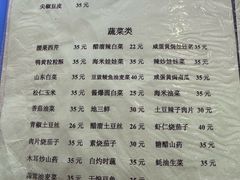 尖椒豆皮 35元
蔬菜类
腰果西芹 35元 醋溜辣白菜 22元 咸蛋黄焗
鸭黄拉粒酥 35元 海米娃娃菜 35元 辣炒娃娃菜 35元
山东白菜 35元 豆豉鲮鱼油麦菜 30元 咸蛋黄焗南瓜 35元
松仁玉米 35元 酱爆圆白菜 25元 海米油菜 35元
香菇油菜 35元 地三鲜 30元 土豆辣子肉片 30元
青椒土豆丝 26元 醋溜土豆丝 26元 虾仁烧茄子 40元
肉片烧茄子 35元 素烧茄子 30元 糖醋山药 35元
木耳炒山药 35元 白灼时蔬 35元 蚝油生菜 35元
35元 干煸豆角